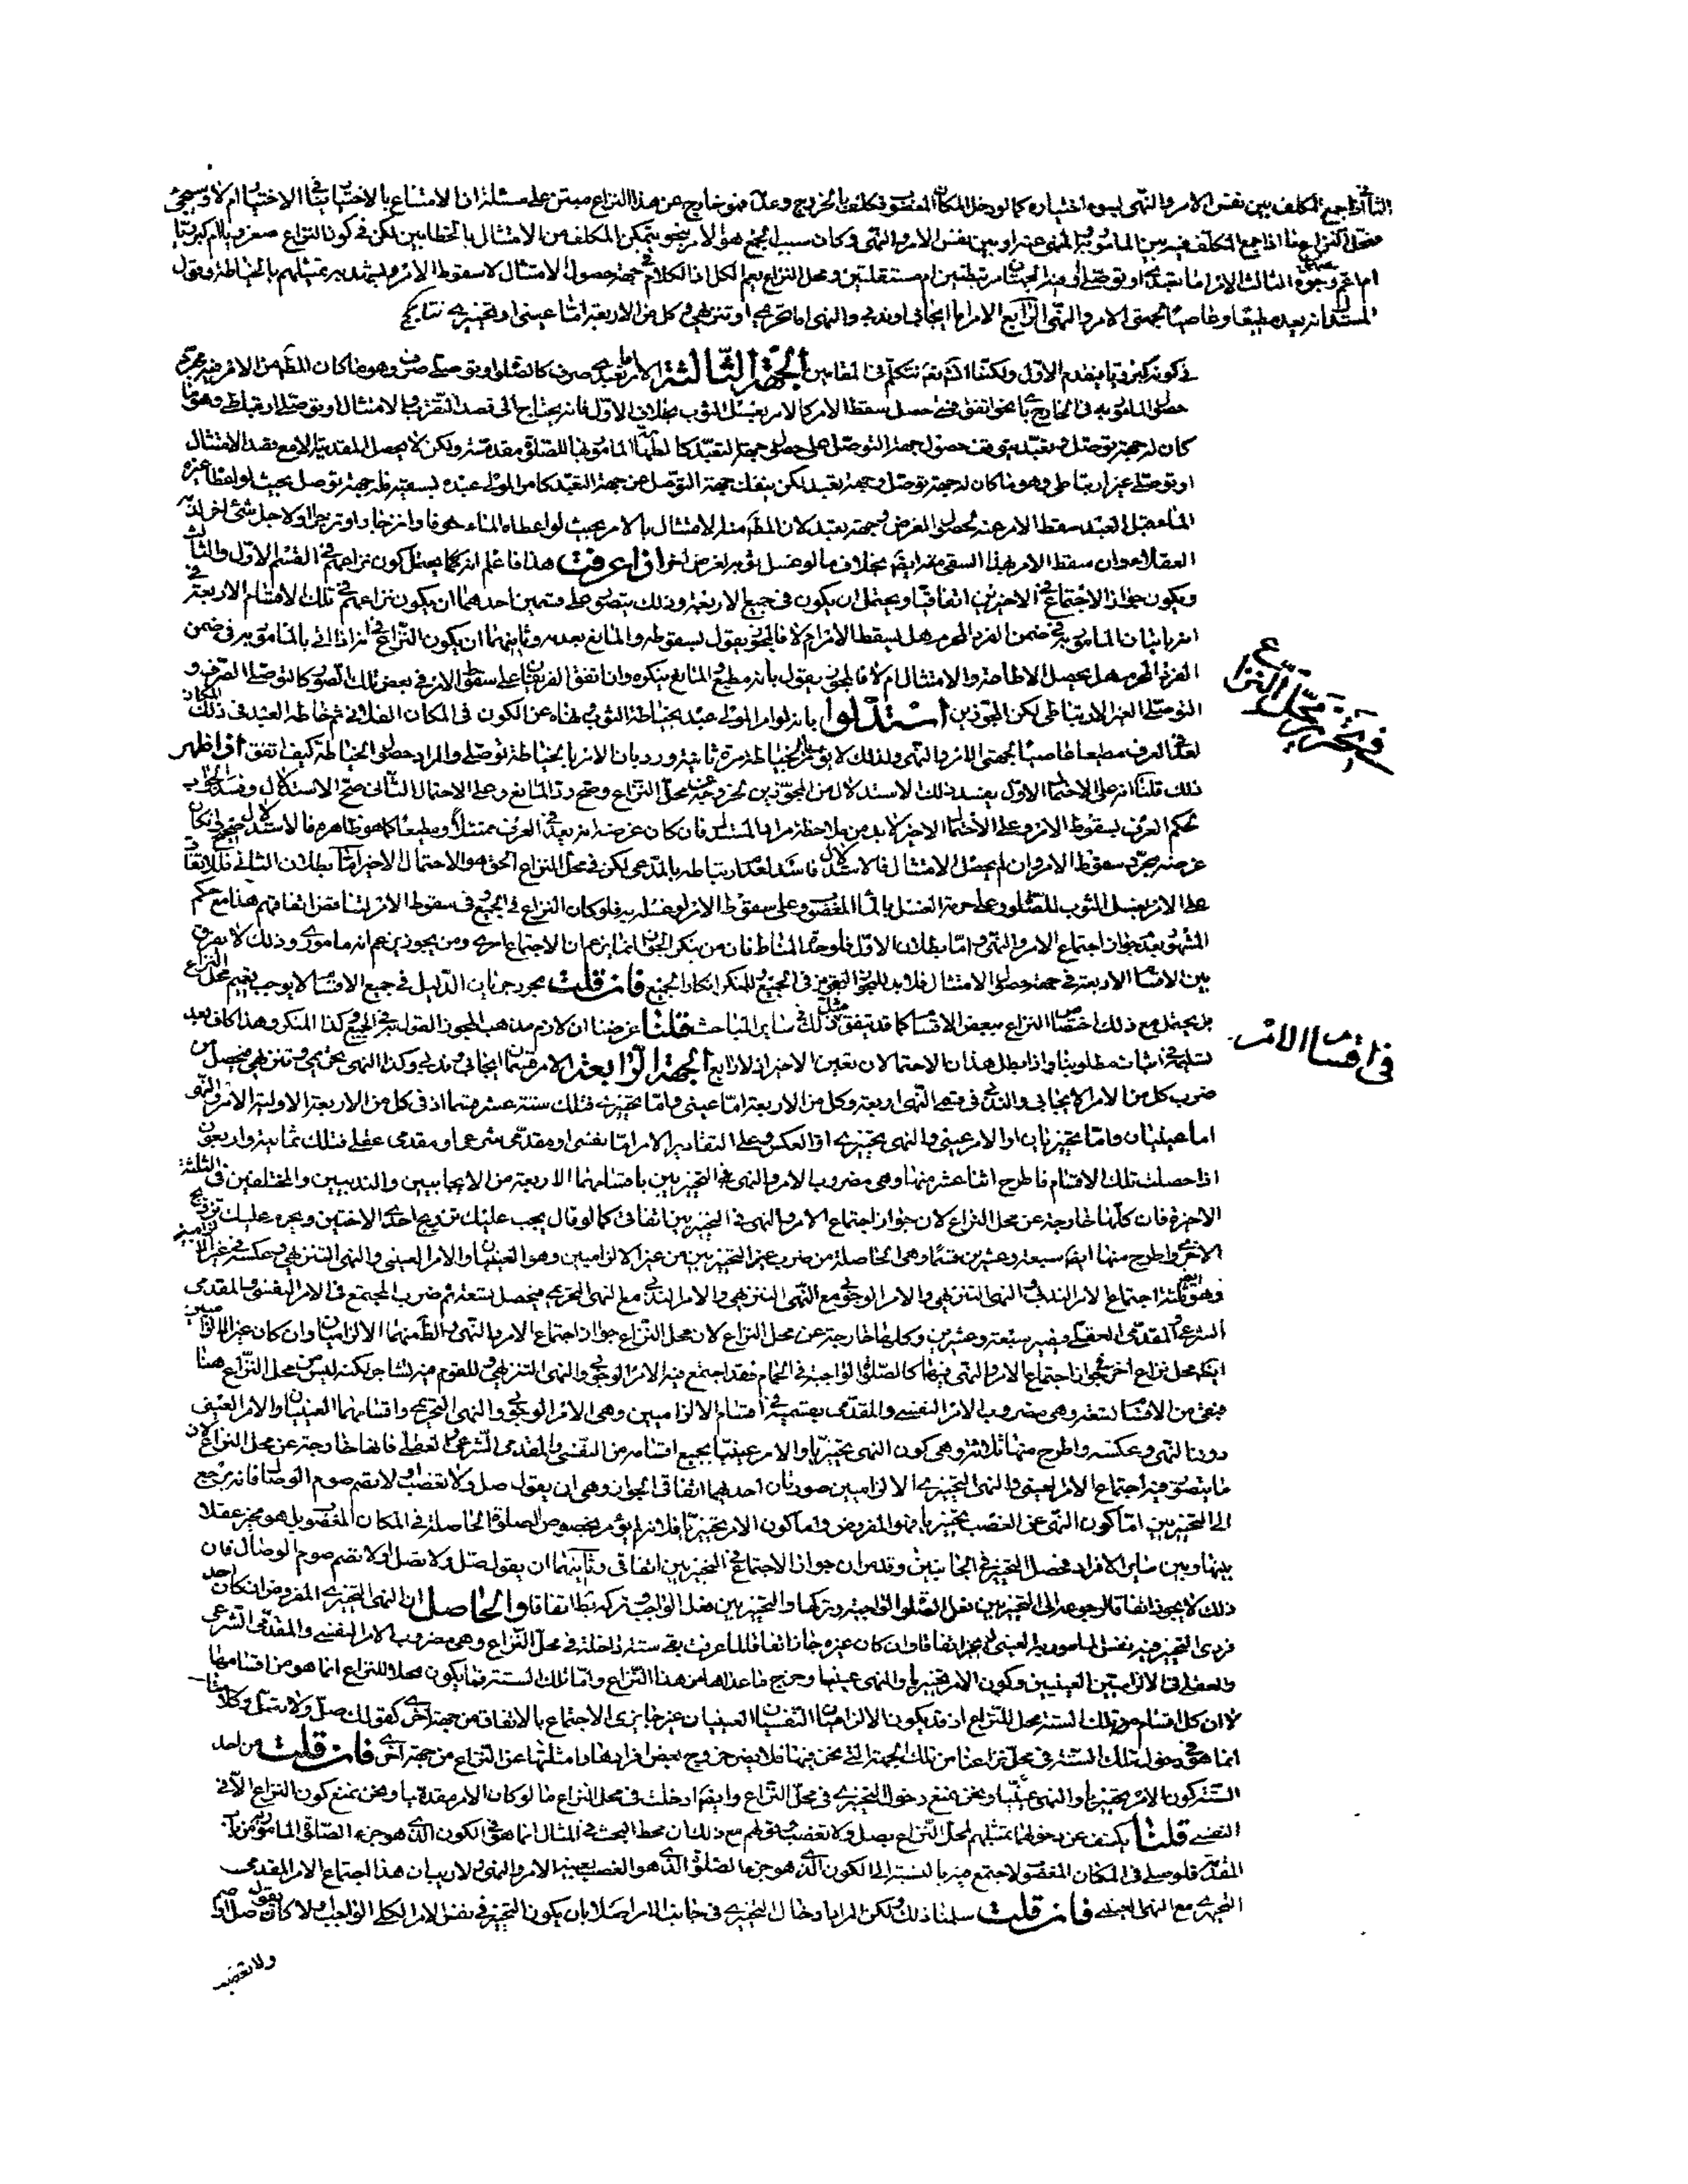 اذا جمع المكلف بين نفس الامر والنهى بسوء اختياره كما لو دخل المكان المغصوب فكلف بالخروج وعدمه فهو خارج عن هذا النزاع مبتن على مسئلة ان الامتناع بالاختيار ينافى الاختيار ام لا
فمحل النزاع هنا اذا جمع المكلف فيه بين المامور به والمنهى عنه او بين نفس الامر والنهى وكان سبب الجمع هو الامر بنحو يتمكن المكلف من الامتثال بالخطابين لكن فى كون النزاع صغرويا ام كبرويا
ام اعم وجوه الثالث الامر اما تعبدى او توصلى وفيه الجهتان مرتبطتين ام مستقلتين ومحل النزاع يعم الكل اذ الكلام فى جهة حصول الامتثال لا سقوط الامر ويشهد به تمثيلهم بالخياطة وقول
المستدل انه يعد مطيعا وعاصيا لجهتى الامر والنهى الرابع الامر اما ايجابى او ندبى والنهى اما تحريمى او تنزيهى وكل من الاربعة اما عينى او تخييرى
فى كونه كبرويا بما تقدم الاول ولكنا نتكلم فى المقامين الجهة الثالثة الامر اما تعبدى صرف كالصلوة او توصلى صرف وهو ما كان المطلوب من الامر فيه مجرد
حصول المامور به فى الخارج باى نحو اتفق فمتى حصل سقط الامر كالامر بغسل الثوب بخلاف الاول فانه يحتاج الى قصد التقرب والامتثال او توصلى ارتباطى وهو ما
كان له جهة توصل وتعبد يتوقف حصول جهة التوصل على حصول جهة التعبد كالطهارة المامور بها للصلوة مقدمة ولكن لا يحصل المقدمية الا مع قصد الامتثال
او توصلى غير ارتباطى وهو ما كان له جهة توصل وجهة تعبد لكن ينفك جهة التوصل عن جهة التعبد كامر المولى عبده بسقيه فله جهة توصل بحيث لو اعطاه غيره
الماء قبل العبد سقط الامر عنه لحصول الغرض وجهة تعبد لان المطلوب منه الامتثال بالامر بحيث لو اعطاه الماء خوفا
العقلاء وان سقط الامر بهذا السقى عنه ايضا بخلاف ما لو غسل ثوبه لغرض اخر اذا عرفت هذا فاعلم انه كما يحتمل كون نزاعهم فى القسم الاول والثالث
ويكون جواز الاجتماع فى الاخيرين اتفاقيا ويحتمل ان يكون فى جميع الاربعة وذلك يتصور على قسمين احدهما ان يكون نزاعهم فى تلك الاقسام الاربعة فى
انه باتيان المامور به فى ضمن الفرد المحرم هل يسقط الامر ام لا فالمجوز يقول بسقوطه والمانع بعدمه وثانيهما ان يكون النزاع فى انه اذا اتى بالمامور به فى ضمن
الفرد المحرم هل يحصل الاطاعة والامتثال ام لا فالمجوز يقول بانه مطيع والمانع ينكره وان اتفق الفريقان على سقوط الامر فى بعض تلك الصور كالتوصلى الصرف و
التوصلى الغير الارتباطى لكن المجوزين استدلوا بانه لو امر المولى عبده بخياطة الثوب ونهاه عن الكون فى المكان الفلانى ثم خاطه العبد فى ذلك المكان
لعد فى العرف مطيعا عاصيا لجهتى الامر والنهى ولذلك لا يؤمر بالخياطة مرة ثانية ورد بان الامر بالخياطة توصلى والمراد حصول الخياطة كيف اتفق اذا ظهر
ذلك قلنا انه على الاحتمال الاول يفسد ذلك الاستدلال من المجوزين لخروجه عن محل النزاع وصح رد المانع وعلى الاحتمال الثانى صح الاستدلال وفسد الجواب
لحكم العرف بسقوط الامر وعلى الاحتمال الاخير لا بد من ملاحظة مراد المستدل فان كان غرضه انه يعد فى العرف ممتثلا ومطيعا كما هو ظاهره فالاستدلال صحيح وان كان
غرضه مجرد سقوط الامر وان لم يحصل الامتثال فالاستدلال فاسد لعدم ارتباطه بالمدعى لكن فى محل النزاع الحق هو الاحتمال الاخير اما بطلان الثانى فللاتفاق
على الامر بغسل الثوب للصلوة وعلى حرمة الغسل بالماء المغصوب وعلى سقوط الامر لو غسله به فلو كان النزاع فى الجميع فى سقوط الامر لتناقض اتفاقهم هذا مع حكم
المشهور بعدم جواز اجتماع الامر والنهى واما بطلان الاول فلوحدة المناط فان من ينكر الجواز انما يزعم ان الاجتماع امرى ومن يجوز يزعم انه مامورى وذلك لا يفرق
بين الاقسام الاربعة فى جهة حصول الامتثال فلا بد للمجوز التجويز فى الجميع وللمنكر انكار الجميع فان قلت مجرد جريان الدليل فى جميع الاقسام لا يوجب تعميم محل النزاع
بل يحتمل مع ذلك اختصاص النزاع ببعض الاقسام كما قد يتفق مثل ذلك فى ساير المباحث قلنا غرضنا ان لازم مذهب المجوز القول به فى الجميع وكذا المنكر وهذا كاف بعد
تسليمه فى اثبات مطلوبنا واذا بطل هذان الاحتمالان تعين الاخير اذ لا رابع الجهة الرابعة الامر قسمان ايجابى وندبى وكذا النهى تحريمى وتنزيهى فيحصل من
ضرب كل من الامر الايجابى والندبى فى قسمى النهى اربعة وكل من الاربعة اما عينى واما تخييرى فتلك ستة عشر قسما اذ فى كل من الاربعة الاولية الامر والنهى
اما عينيان واما تخييريان او الامر عينى والنهى تخييرى او العكس وعلى التقادير الامر اما نفسى او مقدمى شرعى او مقدمى عقلى فتلك ثمانية واربعون
اذا حصلت تلك الاقسام فاطرح اثنا عشر منها وهى مضروب الامر والنهى التخييريين باقسامهما الاربعة من الايجابيين والندبيين والمختلفين فى الثلثة
الاخيرة فان كلها خارجة عن محل النزاع لان جواز اجتماع الامر والنهى فى التخييريين اتفاقى كما لو قال يجب عليك تزويج احدى الاختين ويحرم عليك تزويج
الاخرى واطرح منها ايضا سبعة وعشرين قسما وهى الحاصلة من ضرب غير التخييريين من غير الالزاميين وهو العينيان والامر العينى والنهى التخييرى وعكسه فى غير الالزاميين
وهو ايضا ثلثة اجتماع الامر الندبى والنهى التنزيهى والامر الوجوبى مع النهى التنزيهى والامر الندبى مع النهى التحريمى فيحصل تسعة ثم ضرب المجتمع فى الامر النفسى والمقدمى
الشرعى والمقدمى العقلى فيصير سبعة وعشرين وكلها خارجة عن محل النزاع لان محل النزاع جواز اجتماع الامر والنهى والظاهر منهما الالزاميان وان كان غير الالزاميين
ايضا محل نزاع اخر فى جواز اجتماع الامر والنهى فيهما كالصلوة الواجبة فى الحمام فقد اجتمع فيه الامر الوجوبى والنهى التنزيهى وللقوم فيه تشاجر لكنه ليس من محل النزاع هنا
فبقى من الاقسام تسعة وهى مضروب الامر النفسى والمقدمى بقسميه فى اقسام الالزاميين وهى الامر الوجوبى والنهى التحريمى واقسامهما العينيان والامر العينى
دون النهى وعكسه واطرح منها ثلاثة وهى كون النهى تخييريا والامر عينيا بجميع اقسامه من النفسى والمقدمى الشرعى والعقلى فانها خارجة عن محل النزاع لان
ما يتصور فيه اجتماع الامر العينى والنهى التخييرى الالزاميين صورتان احدهما اتفاقى الجواز وهى ان يقول صل ولا تغصب او لا تصم صوم الوصال فانه يرجع
الى التخييريين اما كون النهى عن الغصب تخييريا فهو المفروض واما كون الامر تخييريا فلانه لم يؤمر بخصوص الصلوة الحاصلة فى المكان المغصوب بل هو مخير عقلا
بينها وبين ساير الافراد فحصل التخيير فى الجانبين وقد مر ان جواز الاجتماع فى التخييريين اتفاقى وثانيتهما ان يقول صل ولا تصل او لا تصم صوم الوصال فان
ذلك لا يجوز اتفاقا لرجوعه الى التخييريين فعل الصلوة الواجبة وتركها والتخيير بين فعل الواجب وتركه باطل اتفاقا والحاصل ان النهى التخييرى المفروض ان كان احد
فردى التخيير فيه نفس المامور به العينى لم يجز اتفاقا وان كان غيره جاز اتفاقا لما عرفت بقى ستة داخلة فى محل النزاع وهى مضروب الامر النفسى والمقدمى الشرعى
والعقلى فى الالزاميين العينيين وكون الامر تخييريا والنهى عينيا وخرج ما عداها من هذا النزاع واما تلك الستة فما يكون محلا للنزاع انما هو من اقسامها
لا ان كل اقسام تلك الستة محل للنزاع اذ قد يكون الالزاميان النفسيان العينيان غير جايزى الاجتماع بالاتفاق من جهة اخرى كقولك صل ولا تصل وكلامنا
انما هو فى دخول تلك الستة فى محل نزاعنا من تلك الجهة التى نحن فيها فلا يضر خروج بعض افرادها وامثلتها عن النزاع من جهة اخرى فان قلت من احد
الستة كون الامر تخييريا والنهى عينيا ونحن نمنع دخول التخييرى فى محل النزاع وايضا ادخلت فى محل النزاع ما لو كان الامر مقدميا ونحن نمنع كون النزاع الا فى
النفسى قلنا يكشف عن دخولهما تمثيلهم لمحل النزاع بصل ولا تغصب وقولهم مع ذلك ان محط البحث فى المثال انما هو فى الكون الذى هو جزء الصلوة المامور به من باب
المقدمة فلو صلى فى المكان المغصوب لاجتمع فيه بالنسبة الى الكون الذى هو جزء الصلوة الذى هو الغصب بعينه الامر والنهى ولا ريب ان هذا اجتماع الامر المقدمى
التخييرى مع النهى العينى فان قلت سلمنا ذلك ولكن المراد بادخال التخييرى فى جانب الامر اصلا بان يكون التخيير فى نفس الامر الكلى الواجب ولا كان يقول صل او صم
ولا تغصب
فى تحرير محل النزاع
فى اقسام الامر